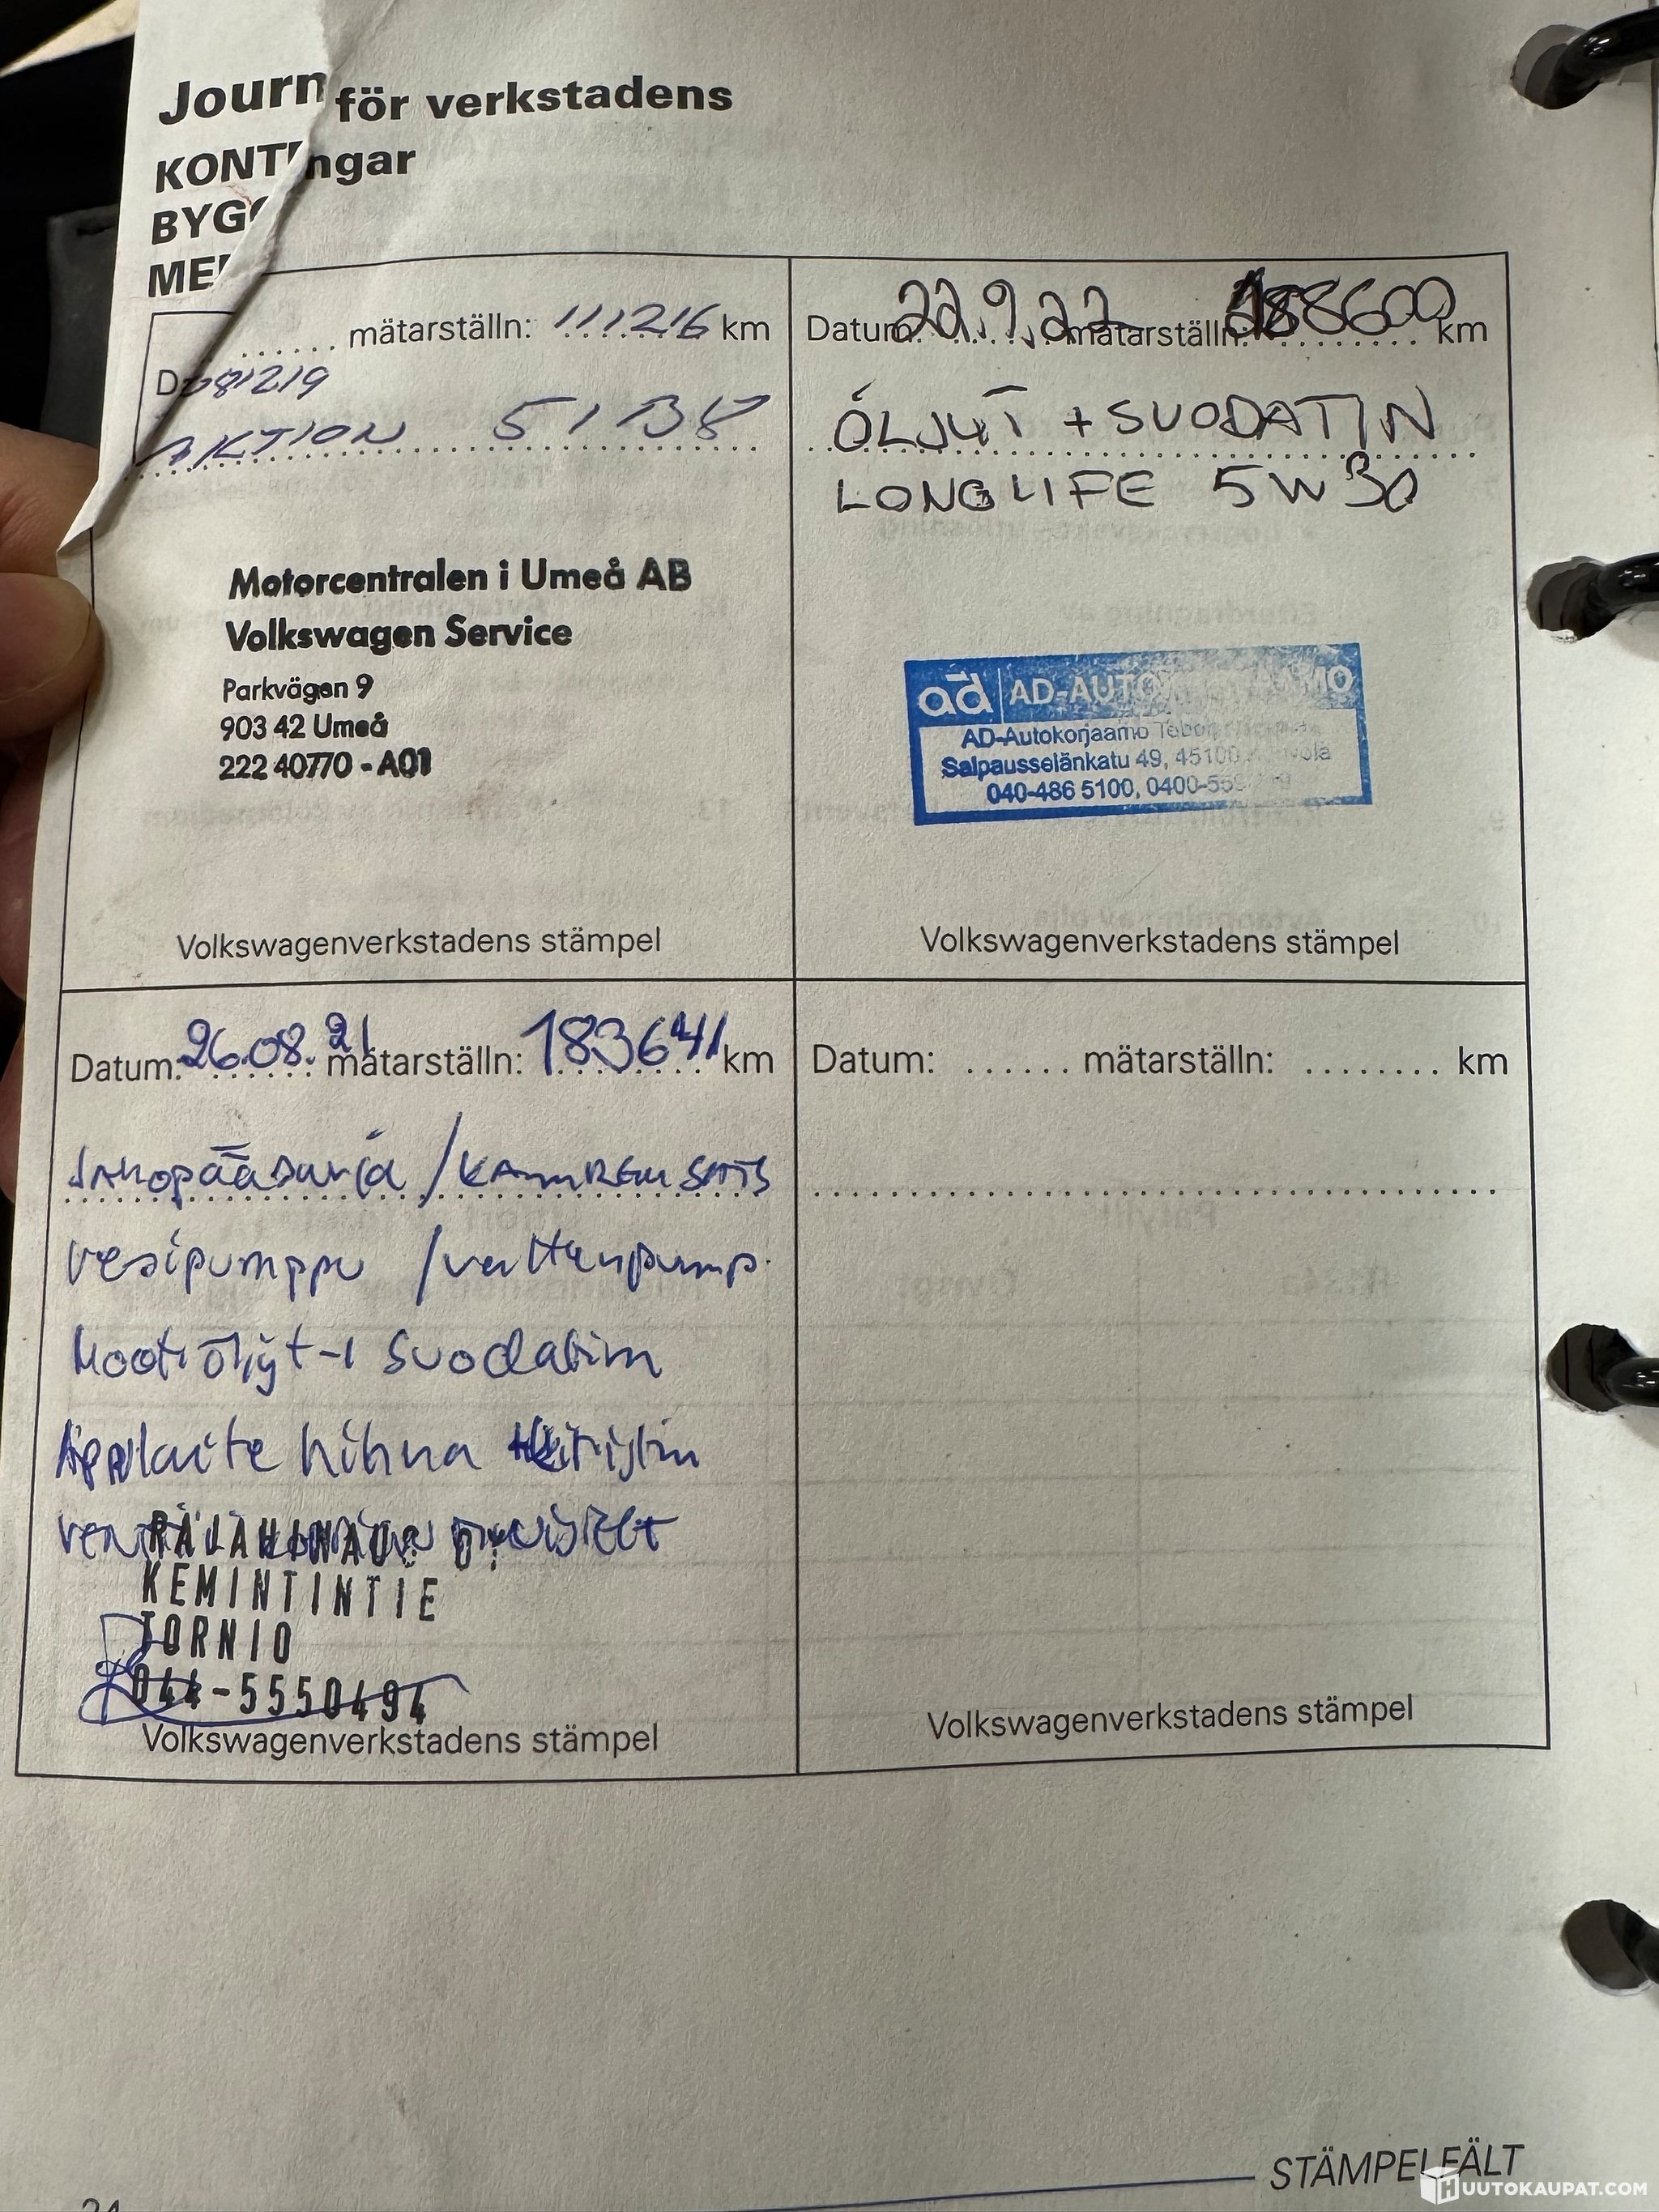 Journ för verkstadens
KONT ngar
BYG
ME
...... mätarställn: 111216 km
D 081219
AKTION 51B8
Motorcentralen i Umeå AB
Volkswagen Service
Parkvägen 9
903 42 Umeå
222 40770 - A01
Volkswagenverkstadens stämpel
Datum: 22.9.22 mätarställn: 188600 km
ÖLJYT + SUODATIN
LONGLIFE 5W30
ad AD-AUTO MO
AD-Autokorjaamo
Salpausselänkatu 49, 45100
040-486 5100, 0400-
Volkswagenverkstadens stämpel
Datum: 26.08.21 mätarställn: 183641 km
Jakopääsarja / KAMREM SATS
vesipumppu / vattenpump.
Moot. öljyt + suodatin
Apulaite hihna kiristin
KEMINTINTIE
TORNIO
044-5550494
Volkswagenverkstadens stämpel
Datum: ...... mätarställn: ........ km
Volkswagenverkstadens stämpel
STÄMPELFÄLT
24
HUUTOKAUPAT.COM